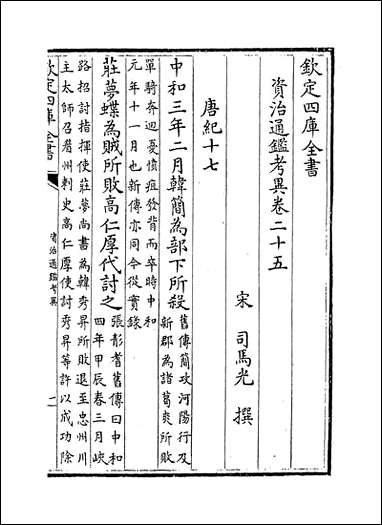 欽定四庫全書
資治通鑑考異卷二十五
宋 司馬光 撰
唐紀十七
中和三年二月韓簡為部下所殺 舊傳簡攻河陽行及
新鄉為諸葛爽所敗
單騎奔迴憂憤疽發背而卒時中和
元年十一月也新傳亦同今從實錄
莊夢蝶為賊所敗高仁厚代討之 張彭耆舊傳曰中和
四年甲辰春三月峽
路招討指揮使莊夢尚書為韓秀昇所敗退至忠州川
主太師召眉州刺史高仁厚使討秀昇等許以成功除
欽定四庫全書
資治通鑑考異
一